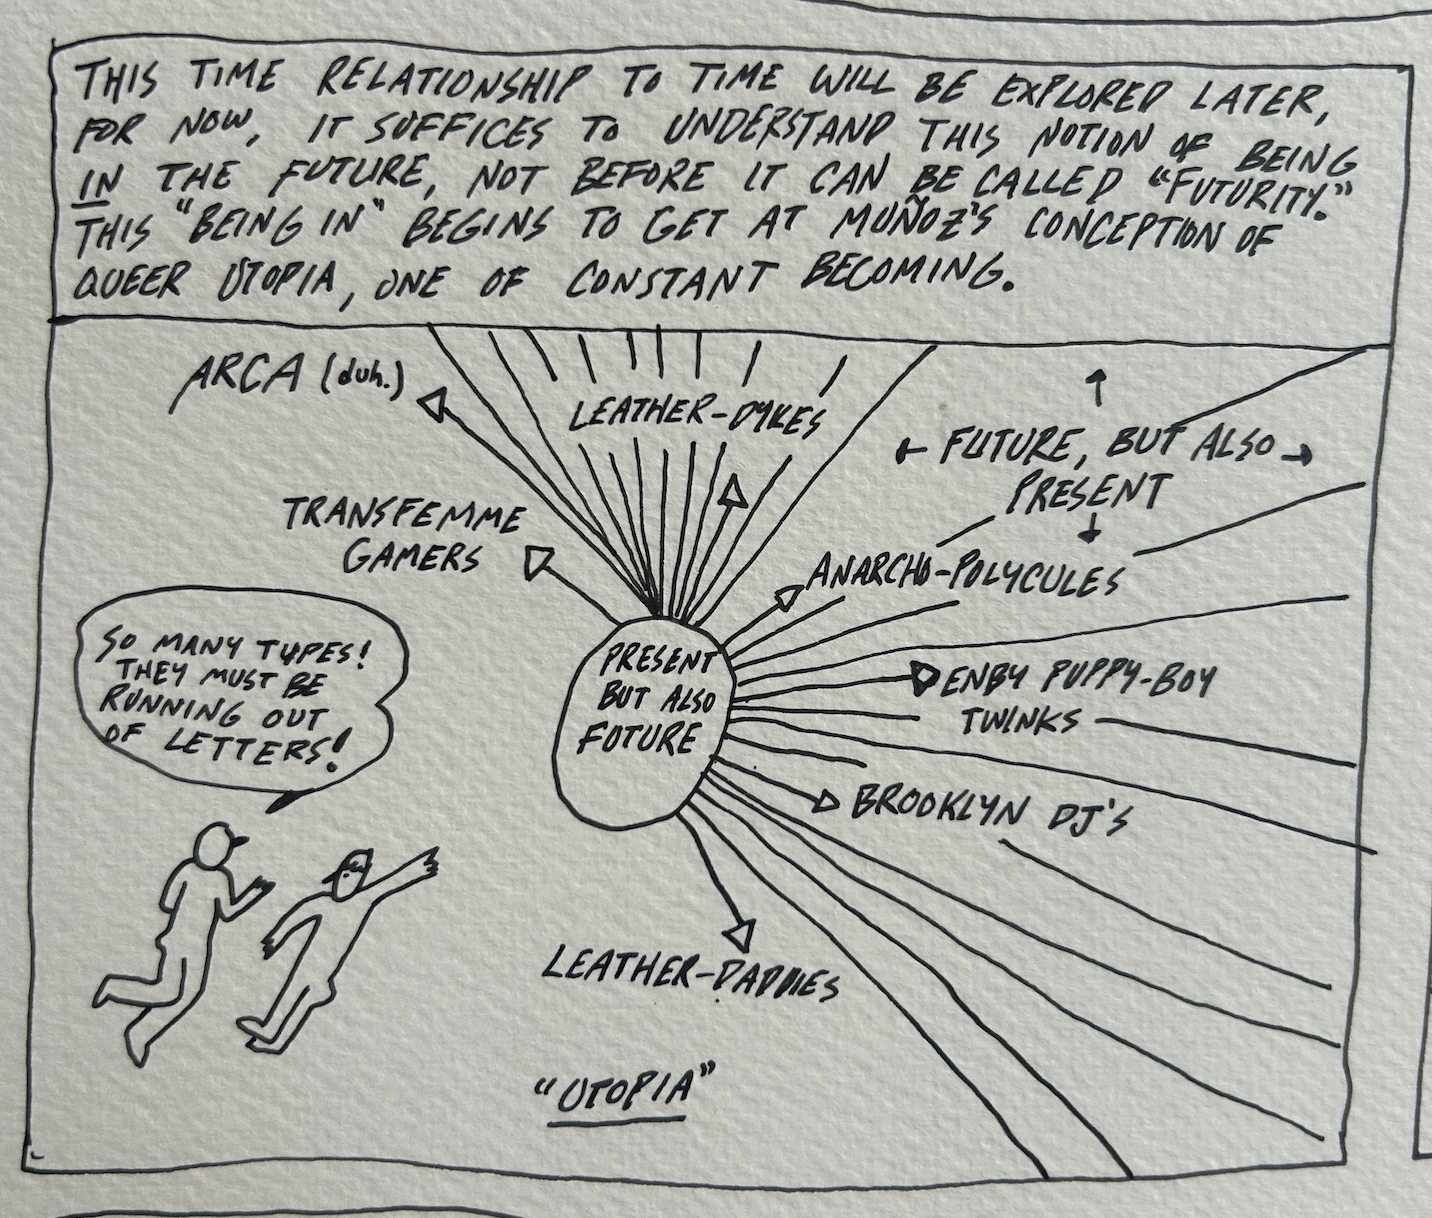 THIS TIME RELATIONSHIP TO TIME WILL BE EXPLORED LATER,
FOR NOW, IT SUFFICES TO UNDERSTAND THIS NOTION OF BEING
IN THE FUTURE, NOT BEFORE IT CAN BE CALLED "FUTURITY."
THIS "BEING IN" BEGINS TO GET AT MUÑOZ'S CONCEPTION OF
QUEER UTOPIA, ONE OF CONSTANT BECOMING.
ARCA (duh.)
LEATHER-DYKES
FUTURE, BUT ALSO
PRESENT
TRANSFEMME
GAMERS
ANARCHO-POLYCULES
SO MANY TYPES!
THEY MUST BE
RUNNING OUT
OF LETTERS!
PRESENT
BUT ALSO
FUTURE
ENBY PUPPY-BOY
TWINKS
BROOKLYN DJ'S
LEATHER-DADDIES
"UTOPIA"